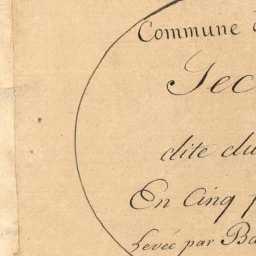 Commune
Sec
dite du
En Cinq
Levée par Ba